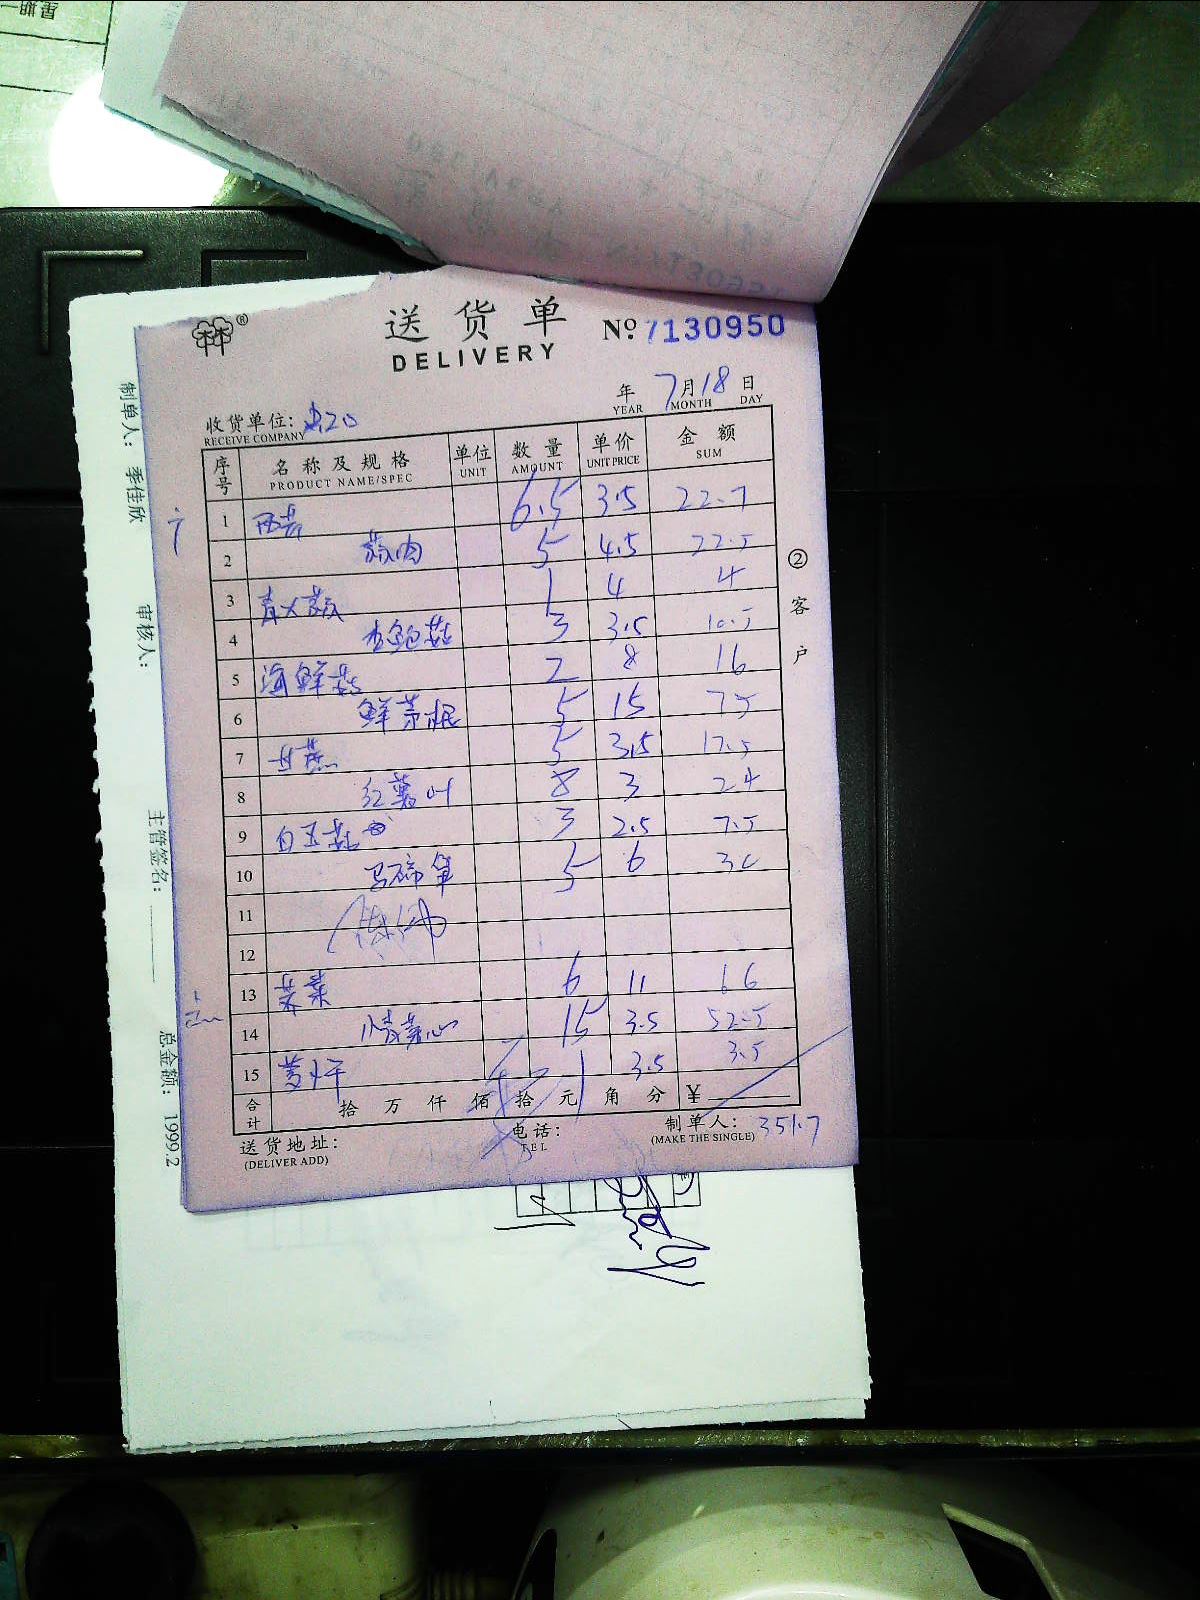 星期一
送货单
DELIVERY
No 7130950
年 7月18日
YEAR MONTH DAY
收货单位:
RECEIVE COMPANY
序号 名称及规格 单位 数量 单价 金额
PRODUCT NAME/SPEC UNIT AMOUNT UNIT PRICE SUM
1 西芹 6.5 3.5 22.7
2 5 4.5 22.5
3 1 4 4
4 杏鲍菇 3 3.5 10.5
5 海鲜菇 2 8 16
6 鲜茅根 5 15 75
7 5 3.5 17.5
8 红薯叶 8 3 24
9 白玉菇 3 2.5 7.5
10 马碲 5 6 30
11
12
13 6 11 66
14 15 3.5 52.5
15 1 3.5 3.5
合计 拾 万 仟 佰 拾 元 角 分 ¥
送货地址:
(DELIVER ADD)
电话:
TEL
制单人: 351.7
(MAKE THE SINGLE)
②客户
制单人: 季佳欣
审核人:
主管签名:
总金额: 1999.2